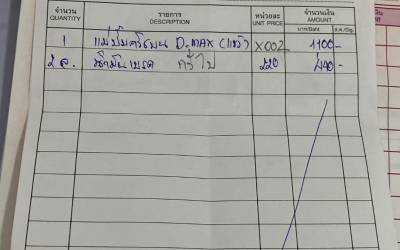 จำนวน รายการ หน่วยละ จำนวนเงิน
QUANTITY DESCRIPTION UNIT PRICE AMOUNT
1 แม่ปั๊มครัชบน D-MAX (แท้) X002 1100-
2 ล. น้ำมันเบรค 220 440-